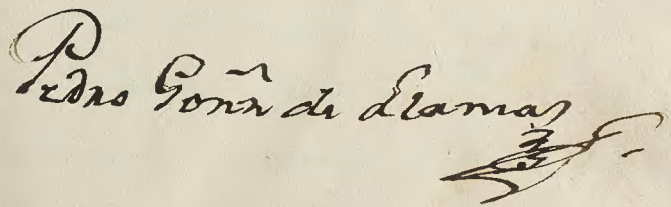 Pedro Gonz̃ de Llamas